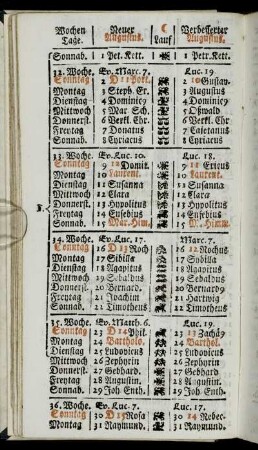 Wochen Neuer ☾ Verbesserter
Tage. Augustus. Lauf Augustus.
Sonnab. 1 Pet. Kett. 1 Petr. Kett.
32. Woche. Ev. Marc. 7. Luc. 19
Sonntag 2 D 11 Port. 2 10 Gustav.
Montag 3 Steph. Er. 3 Augustus
Dienstag 4 Dominicq 4 Dominicq
Mittwoch 5 Mar. Sch. 5 Oßwald
Donnerst. 6 Verkl. Chr. 6 Verkl. Chr
Freytag 7 Donatus 7 Cajetanus
Sonnab. 8 Cyriacus 8 Cyriacus
33. Woche. Ev. Luc. 10. Luc. 18.
Sonntag 9 12 Domit. 9 11 Ericus
Montag 10 Laurent. 10 Laurent.
Dienstag 11 Susanna 11 Susanna
Mittwoch 12 Clara 12 Clara
Donnerst. 13 Hypolitus 13 Hypolitus
Freytag 14 Eusebius 14 Eusebius
Sonnab. 15 Mar. Him. 15 M. Himm.
34. Woche. Ev. Luc. 17. Marc. 7.
Sonntag 16 D 13 Roch 16 12 Rochus
Montag 17 Sibilla 17 Sibilla
Dienstag 18 Agapitus 18 Agapitus
Mittwoch 19 Sebaldus 19 Sebaldus
Donnerst. 20 Bernard. 20 Bernard
Freytag 21 Joachim 21 Hartwig
Sonnab. 22 Timotheus 22 Timotheus
35. Woche. Ev. Matth. 6. Luc. 19.
Sonntag 23 D 14 Phil. 23 13 Zachäq
Montag 24 Bartholo. 24 Barthol.
Dienstag 25 Ludovicus 25 Ludovicus
Mittwoch 26 Zephyrin 26 Zephyrin
Donnerst. 27 Gebhard. 27 Gebhard
Freytag 28 Augustin. 28 Augustin.
Sonnab. 29 Joh. Enth. 29 Joh. Enth.
36. Woche. Ev. Luc. 7. Luc. 17.
Sonntag 30 D 15 Rosa 30 14 Rebec.
Montag 31 Raymund. 31 Raymund.